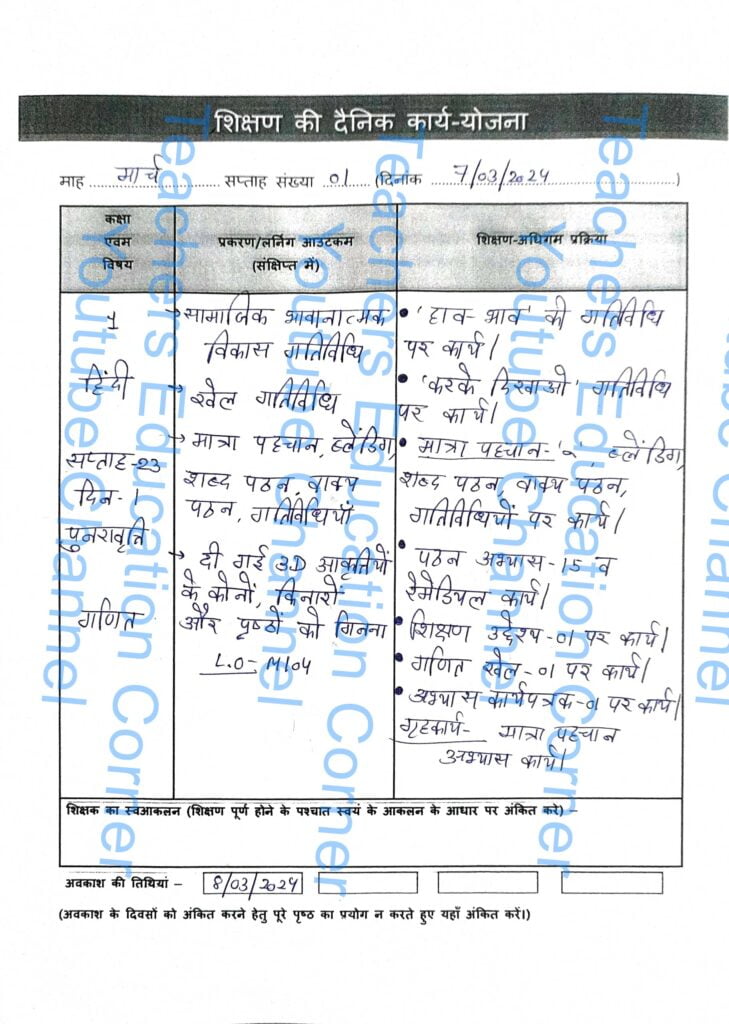 शिक्षण की दैनिक कार्य-योजना
माह मार्च सप्ताह संख्या 01 (दिनांक 7/03/2024)
कक्षा
एवम
विषय
प्रकरण/लर्निंग आउटकम
(संक्षिप्त में)
शिक्षण-अधिगम प्रक्रिया
1
हिंदी
सप्ताह-23
दिन-1
पुनरावृत्ति
गणित
→ सामाजिक भावानात्मक
विकास गतिविधि
→ खेल गतिविधि
→ मात्रा पहचान, ब्लेंडिंग,
शब्द पठन, वाक्य
पठन, गतिविधियाँ
→ दी गई 3D आकृतियों
के कोनों, किनारों
और पृष्ठों को गिनना
L.O- M104
• 'हाव-भाव' की गतिविधि
पर कार्य।
• 'करके दिखाओ' गतिविधि
पर कार्य।
• मात्रा पहचान- ब्लेंडिंग,
शब्द पठन, वाक्य पठन,
गतिविधियों पर कार्य।
• पठन अभ्यास-15 व
रेमेडियल कार्य।
• शिक्षण उद्देश्य-01 पर कार्य।
• गणित खेल-01 पर कार्य।
• अभ्यास कार्यपत्रक-01 पर कार्य।
गृहकार्य- मात्रा पहचान
अभ्यास कार्य।
शिक्षक का स्वआकलन (शिक्षण पूर्ण होने के पश्चात स्वयं के आकलन के आधार पर अंकित करे) –
अवकाश की तिथियां – 8/03/2024
(अवकाश के दिवसों को अंकित करने हेतु पूरे पृष्ठ का प्रयोग न करते हुए यहाँ अंकित करें।)
Teachers Education Corner
Youtube Channel
Teachers Education Corner
Youtube Channel
Teachers Education Corner
Youtube Channel